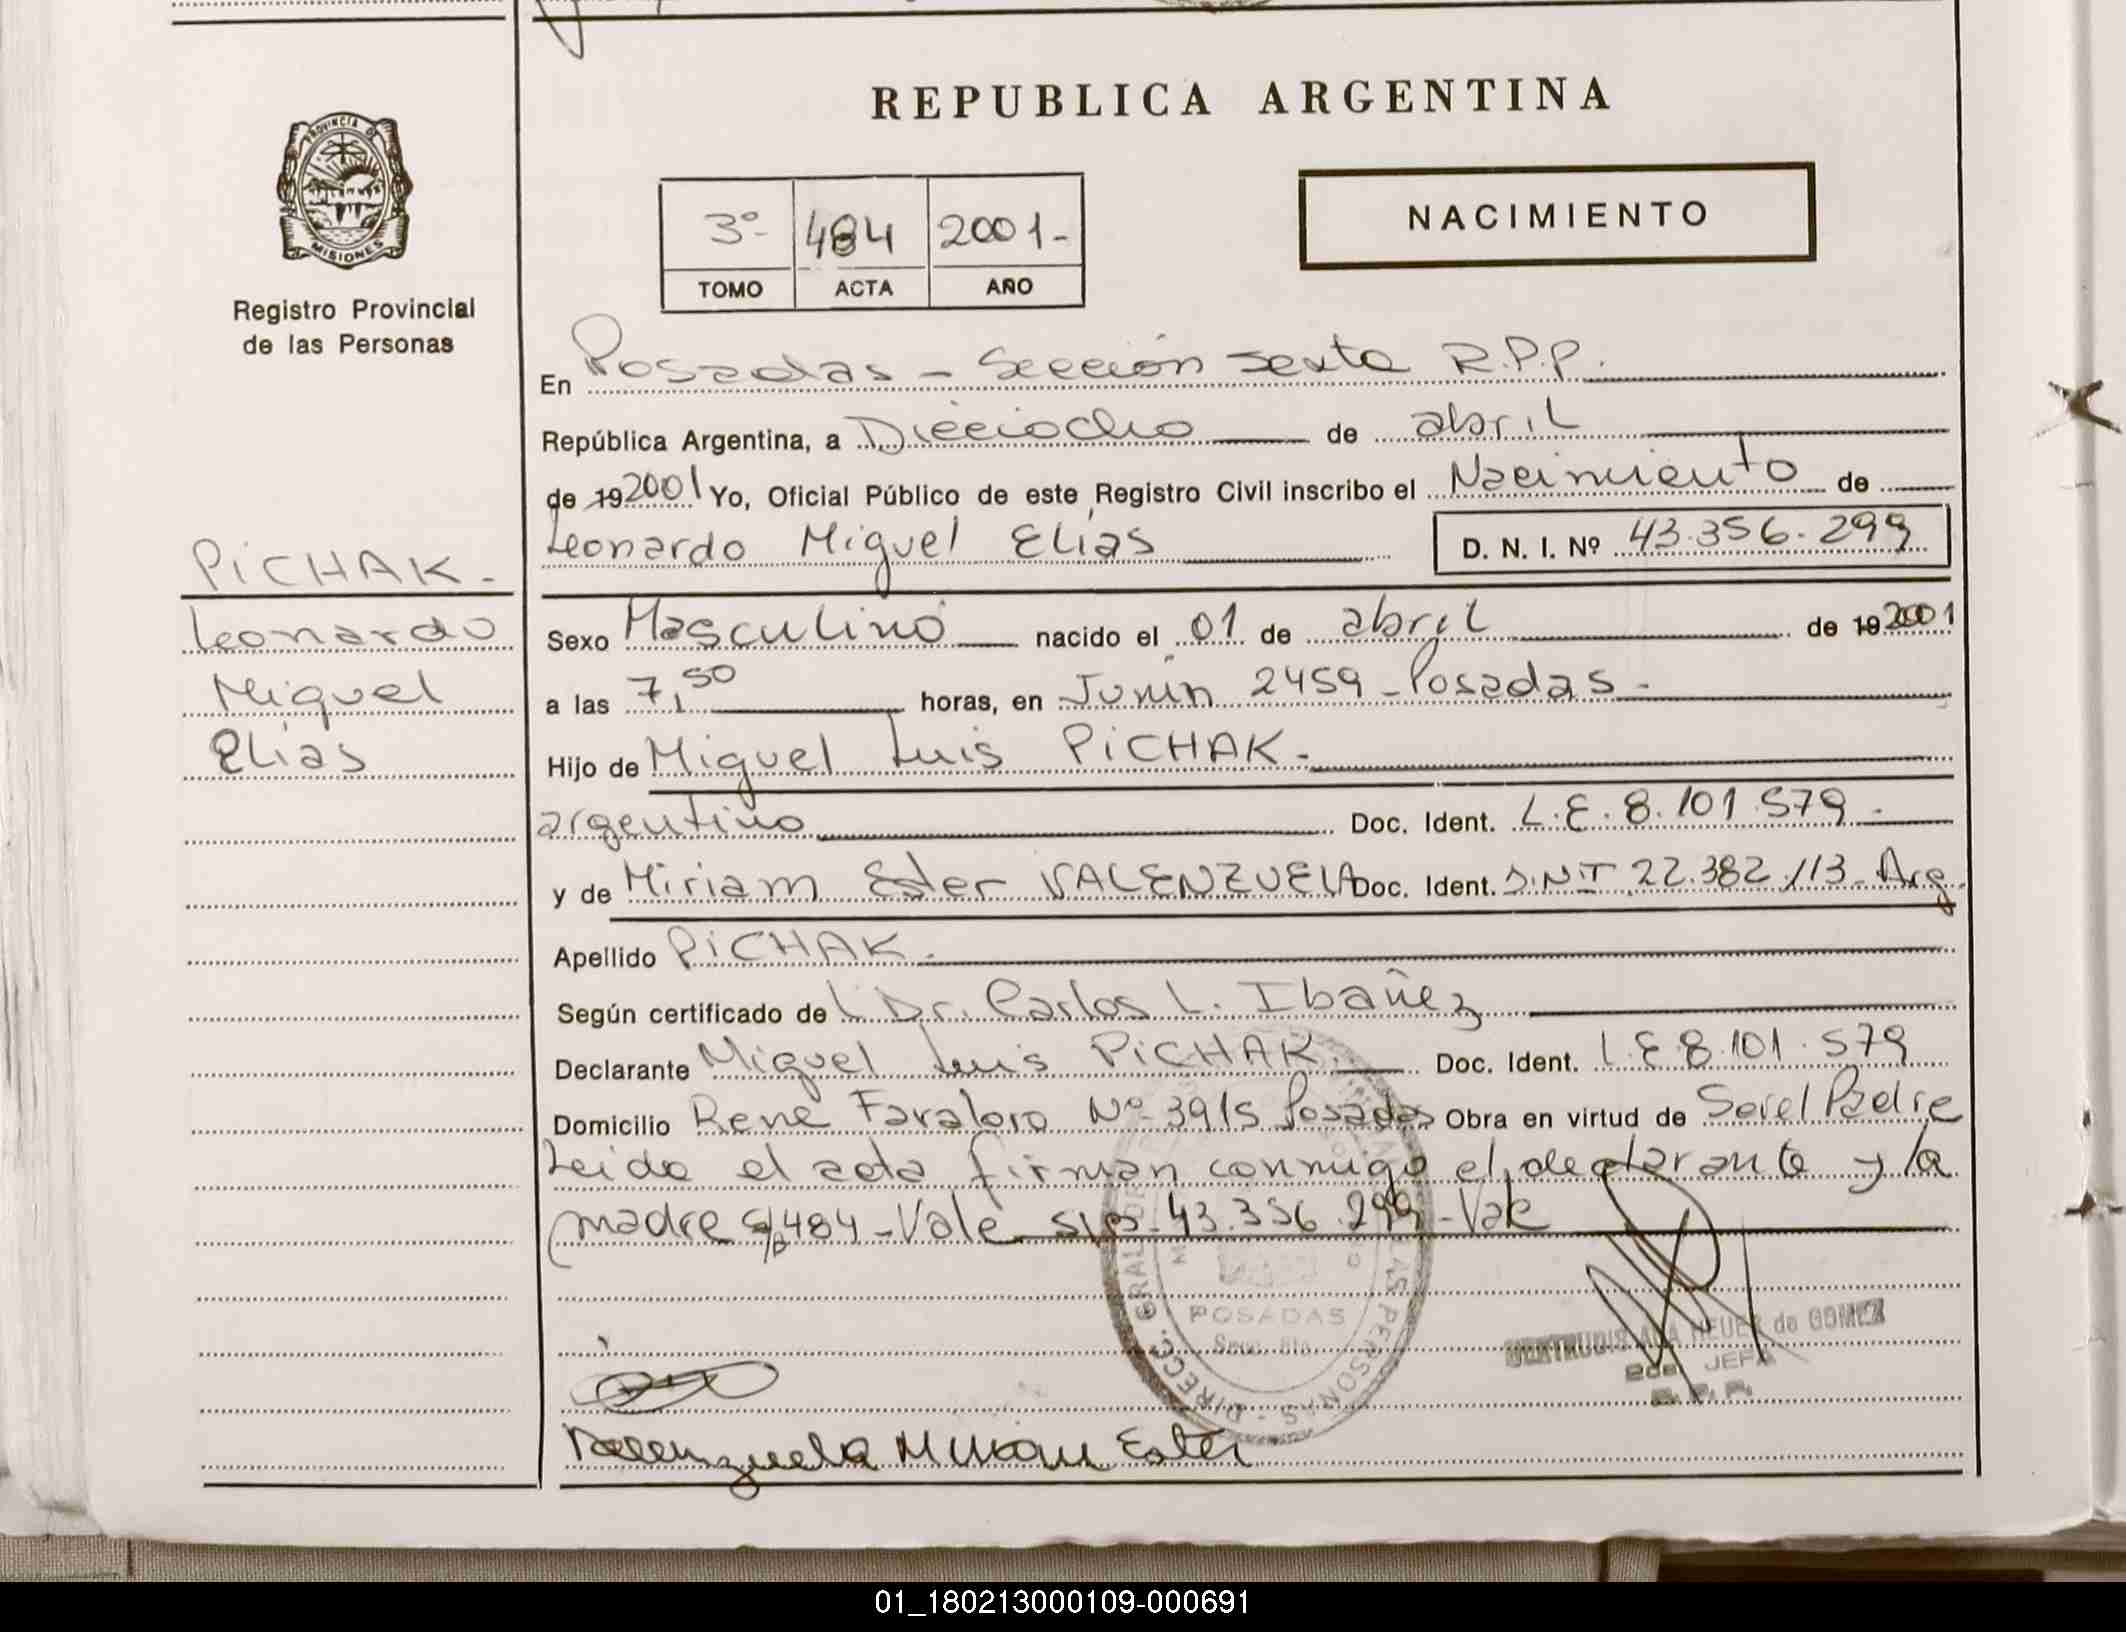 REPUBLICA ARGENTINA
PROVINCIA D
MISIONES
Registro Provincial
de las Personas
3º- 484 2001-
TOMO ACTA AÑO
NACIMIENTO
En Posadas - Sección Sexta R.P.P.
República Argentina, a Dieciocho de abril
de 19 2001 Yo, Oficial Público de este Registro Civil inscribo el Nacimiento de
Leonardo Miguel Elías D. N. I. Nº 43.356.299
PiCHAK-
Leonardo
Miguel
Elías
Sexo Masculino nacido el 01 de abril de 19 2001
a las 7,50 horas, en Junín 2459 - Posadas -
Hijo de Miguel Luis PiCHAK-
argentino Doc. Ident. L.E. 8.101.579-
y de Miriam Ester VALENZUELA Doc. Ident. D.N.I 22.382.113- Arg.
Apellido PiCHAK-
Según certificado de L Dr. Carlos L. Ibañez
Declarante Miguel Luis PiCHAK- Doc. Ident. L.E 8.101.579
Domicilio Rene Favaloro Nº 3915 Posadas Obra en virtud de Ser el Padre
Leida el acta firman conmigo el declarante y la
madre 484 - Vale 43.356.299 - Vale
DIRECC. GRAL DE LAS PERSONAS
POSADAS
Secc. 6ta.
GERTRUDIS ADA NEUER de GOMEZ
2da JEFA
R.P.P.
Valenzuela Miriam Ester
01_180213000109-000691